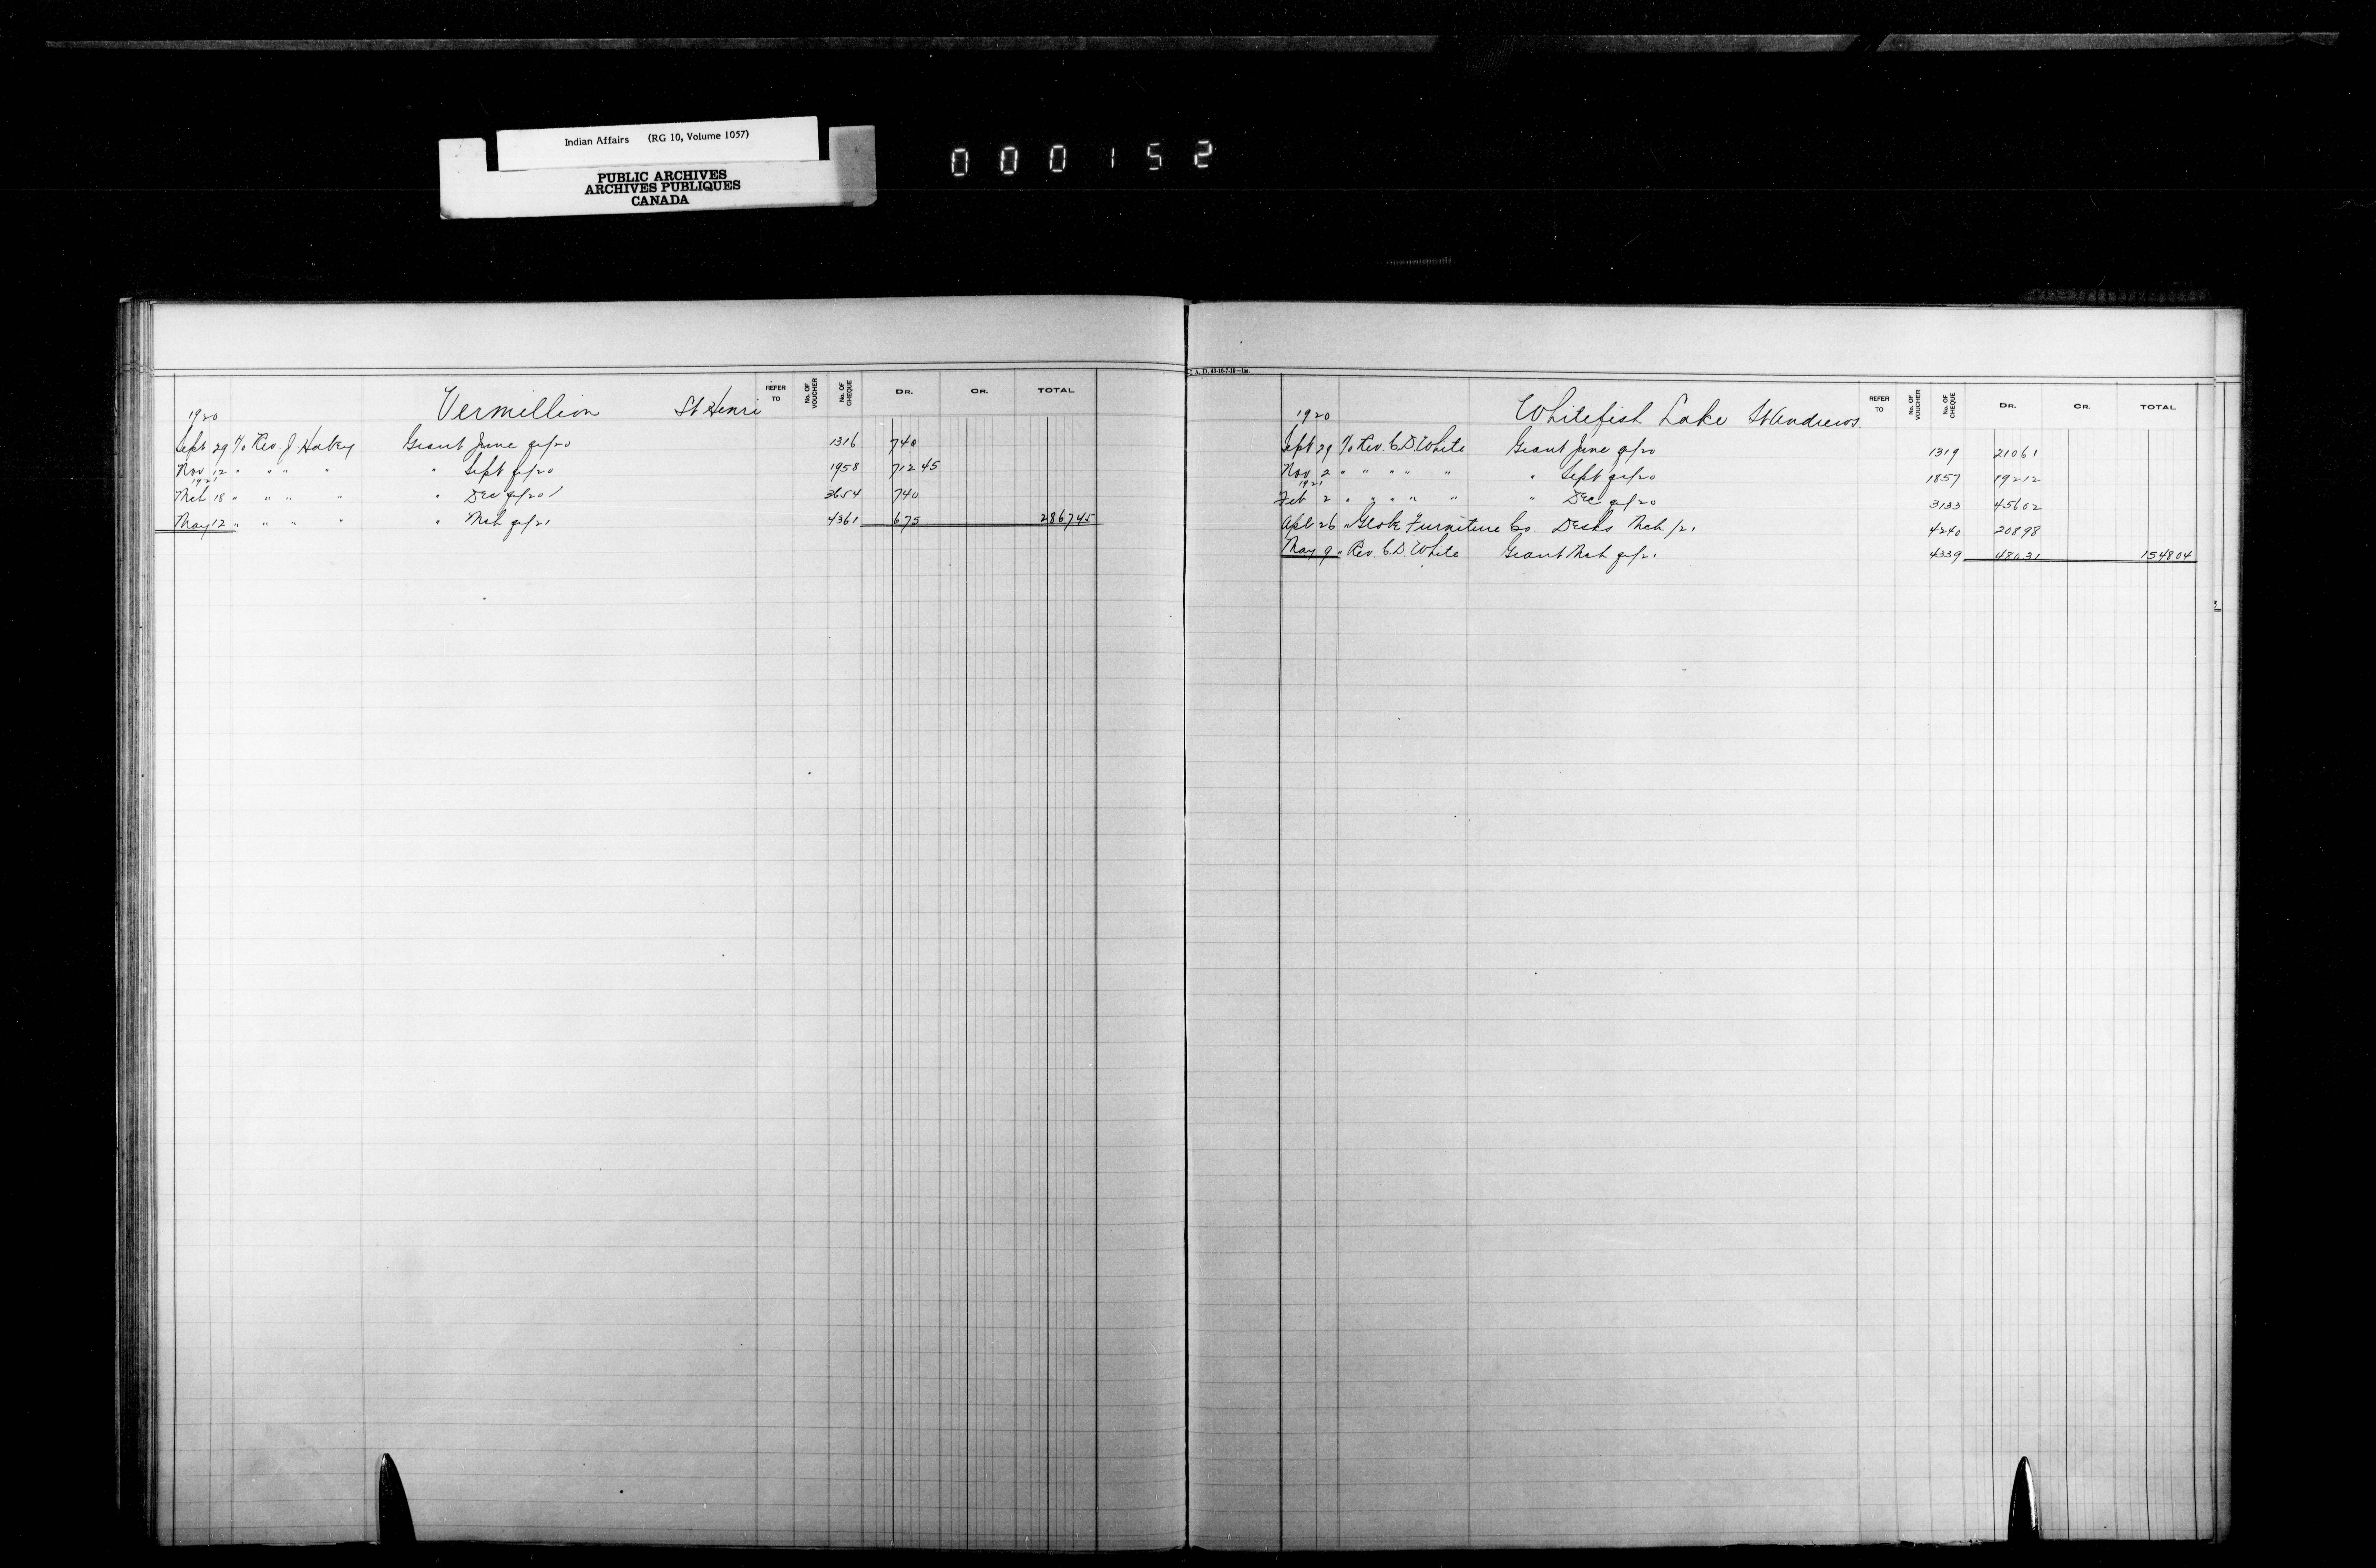 Indian Affairs (RG 10, Volume 1057)
PUBLIC ARCHIVES
ARCHIVES PUBLIQUES
CANADA
000152
Vermillion St Henri
REFER TO No. OF VOUCHER No. OF CHEQUE DR. CR. TOTAL
1920
Sept 29 Rev. J Habay Grant June qr/20 1316 740
Nov 12 " " " " " Sept qr/20 1958 712 45
1921
Mch 18 " " " " " Dec qr/20 3654 740
May 12 " " " " " Mch qr/21 4361 675 2867 45
I. A. D. 43-16-7-19—1M.
Whitefish Lake St Andrews
REFER TO No. OF VOUCHER No. OF CHEQUE DR. CR. TOTAL
1920
Sept 29 Rev. C. D. White Grant June qr/20 1319 210 61
Nov 2 " " " " " " Sept qr/20 1857 192 12
1921
Feb 2 " " " " " " Dec qr/20 3133 456 02
Apl 26 " Globe Furniture Co. Desks Mch /21 4240 208 98
May 9 " Rev. C. D. White Grant Mch qr/21 4339 480 31 1548 04